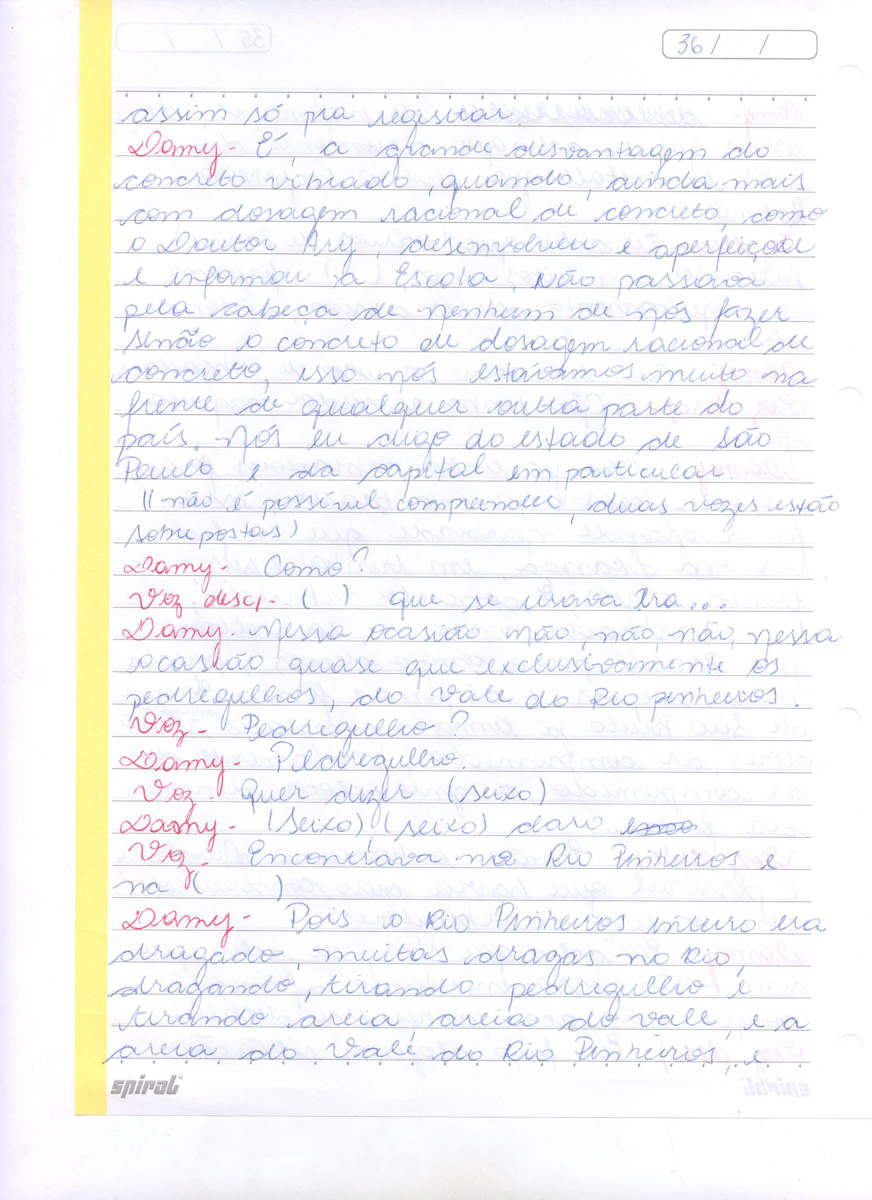 36 / /
assim só pra registrar.
Damy - É, a grande desvantagem do
concreto vibrado, quando, ainda mais
com dosagem racional de concreto, como
o Doutor Ary, desenvolveu e aperfeiçoa
e informou a Escola, não passava
pela cabeça de nenhum de nós fazer
senão o concreto de dosagem racional de
concreto, isso nós estávamos muito na
frente de qualquer outra parte do
país. Nós eu digo do estado de São
Paulo e da capital em particular
(( não é possível compreender, duas vozes estão
sobrepostas)
Damy - Como?
Voz desc/. - ( ) que se usava era...
Damy. Nessa ocasião não, não, não, nessa
ocasião quase que exclusivamente os
pedregulhos, do Vale do Rio pinheiros.
Voz - Pedregulho?
Damy - Pedregulho.
Voz - Quer dizer (seixo)
Damy - (Seixo) (seixo) claro
Voz - Encontrava no Rio Pinheiros e
na ( )
Damy - Pois o Rio Pinheiros inteiro era
dragado, muitas dragas no Rio,
dragando, tirando pedregulho e
tirando areia, areia do vale, e a
areia do Vale do Rio Pinheiros, e
spiral